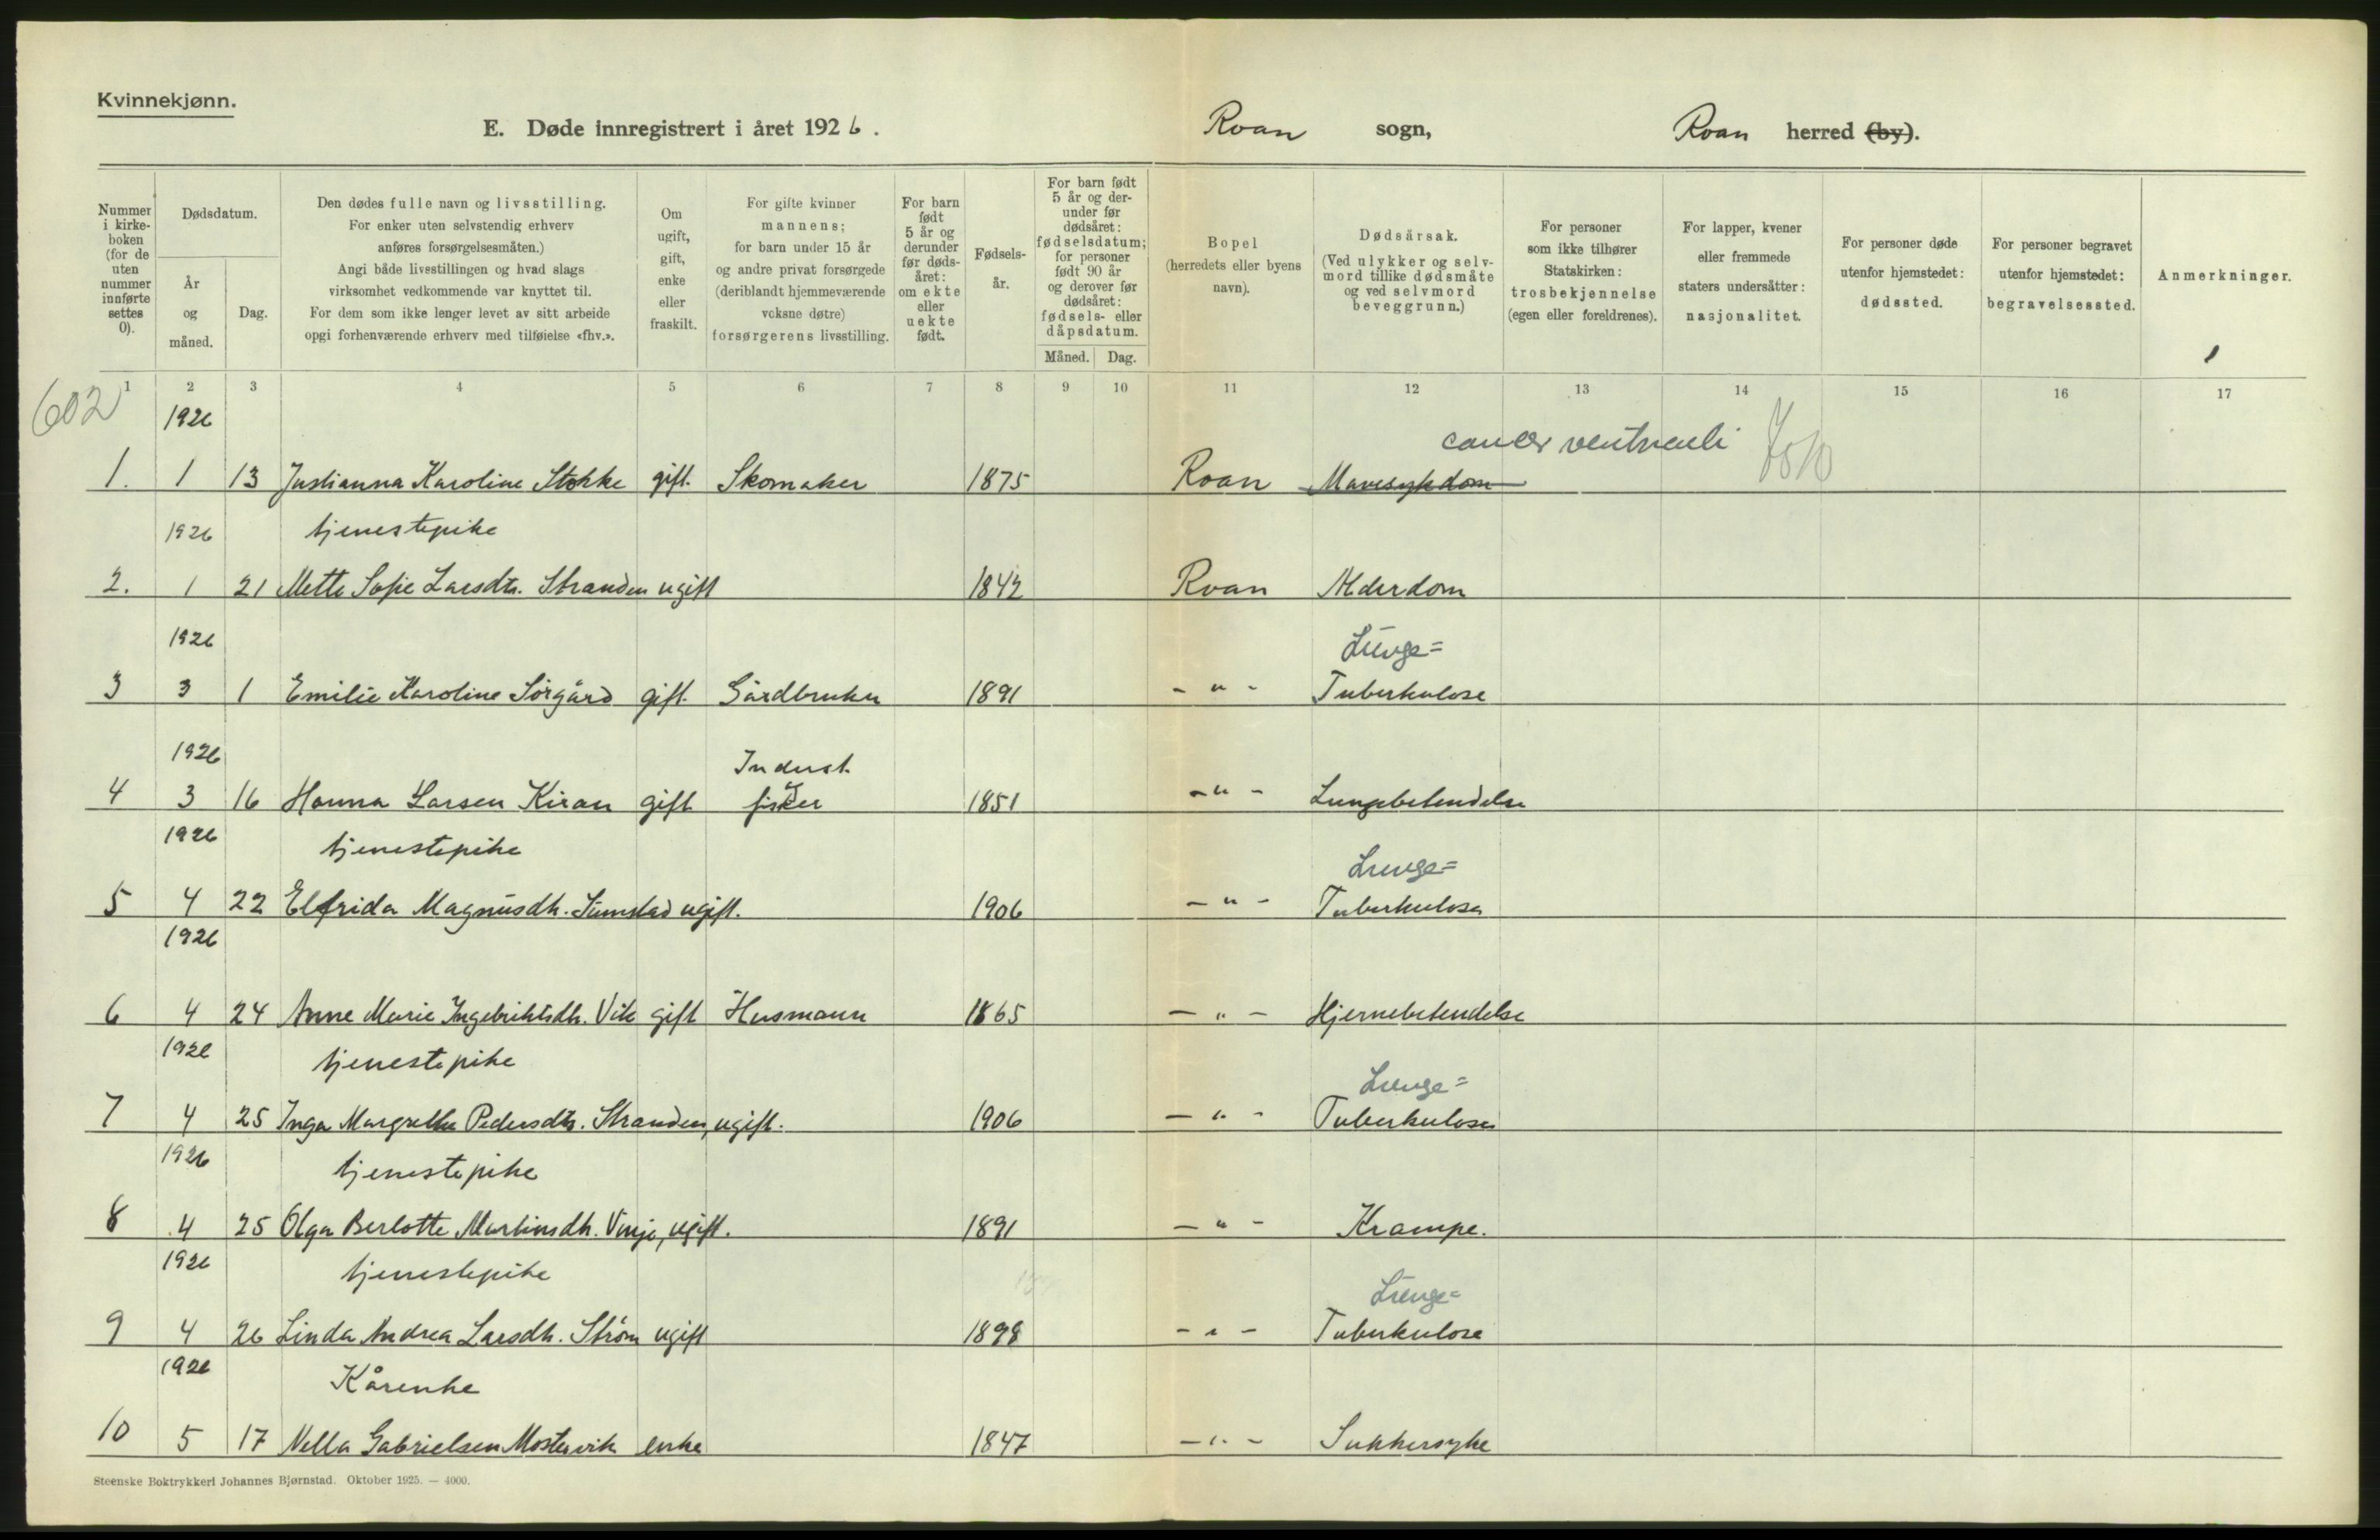 Kvinnekjønn.
E. Døde innregistrert i året 1926. Roan sogn, Roan herred (by).
Nummer i kirkeboken (for de uten nummer innførte settes 0).
Dødsdatum.
År og måned.
Dag.
Den dødes fulle navn og livsstilling.
For enker uten selvstendig erhverv
anføres forsørgelsesmåten.)
Angi både livsstillingen og hvad slags
virksomhet vedkommende var knyttet til.
For dem som ikke lenger levet av sitt arbeide
opgi forhenværende erhverv med tilføielse «fhv.».
Om ugift, gift, enke eller fraskilt.
For gifte kvinner
mannens;
for barn under 15 år
og andre privat forsørgede
(deriblandt hjemmeværende
voksne døtre)
forsørgerens livsstilling.
For barn født 5 år og derunder før dødsåret: om ekte eller uekte født.
Fødselsår.
For barn født 5 år og derunder før dødsåret: fødselsdatum; for personer født 90 år og derover før dødsåret: fødsels- eller dåpsdatum.
Måned. Dag.
Bopel
(herredets eller byens
navn).
Dødsårsak.
(Ved ulykker og selv-
mord tillike dødsmåte
og ved selvmord
beveggrunn.)
For personer
som ikke tilhører
Statskirken:
trosbekjennelse
(egen eller foreldrenes).
For lapper, kvener
eller fremmede
staters undersåtter:
nasjonalitet.
For personer døde
utenfor hjemstedet:
dødssted.
For personer begravet
utenfor hjemstedet:
begravelsessted.
Anmerkninger.
1 2 3 4 5 6 7 8 9 10 11 12 13 14 15 16 17
602
1926 cancer ventriculi
1. 1 13 Justianna Karoline Stokke gift. Skomaker 1875 Roan Mavesykdom
1926 tjenestepike
2. 1 21 Mette Sofie Larsdtr. Stranden ugift 1842 Roan Alderdom
1926 Lunge=
3 3 1 Emilie Karoline Sørgård gift. Gårdbruker 1891 - " - Tuberkulose
1926 Inderst
4 3 16 Hanna Larsen Kiran gift fisker 1851 - " - Lungebetendelse
1926 tjenestepike Lunge=
5 4 22 Elfrida Magnusdtr. Sumstad ugift. 1906 - " - Tuberkulose
1926
6 4 24 Anne Marie Ingebriktsdtr. Vik gift Husmann 1865 - " - Hjernebetendelse
1926 tjenestepike Lunge=
7 4 25 Inga Margrethe Pedersdtr. Stranden, ugift. 1906 - " - Tuberkulose
1926 tjenestepike
8 4 25 Olga Berlotte Martinsdtr. Vinje, ugift. 1891 - " - Krampe.
1926 tjenestepike Lunge=
9 4 26 Linda Andrea Larsdtr. Strøm ugift 1898 - " - Tuberkulose
1926 Kårenke
10 5 17 Nella Gabrielsen Mostervik enke 1847 - " - Sukkersyke
Steenske Boktrykkeri Johannes Bjørnstad. Oktober 1925. — 4000.